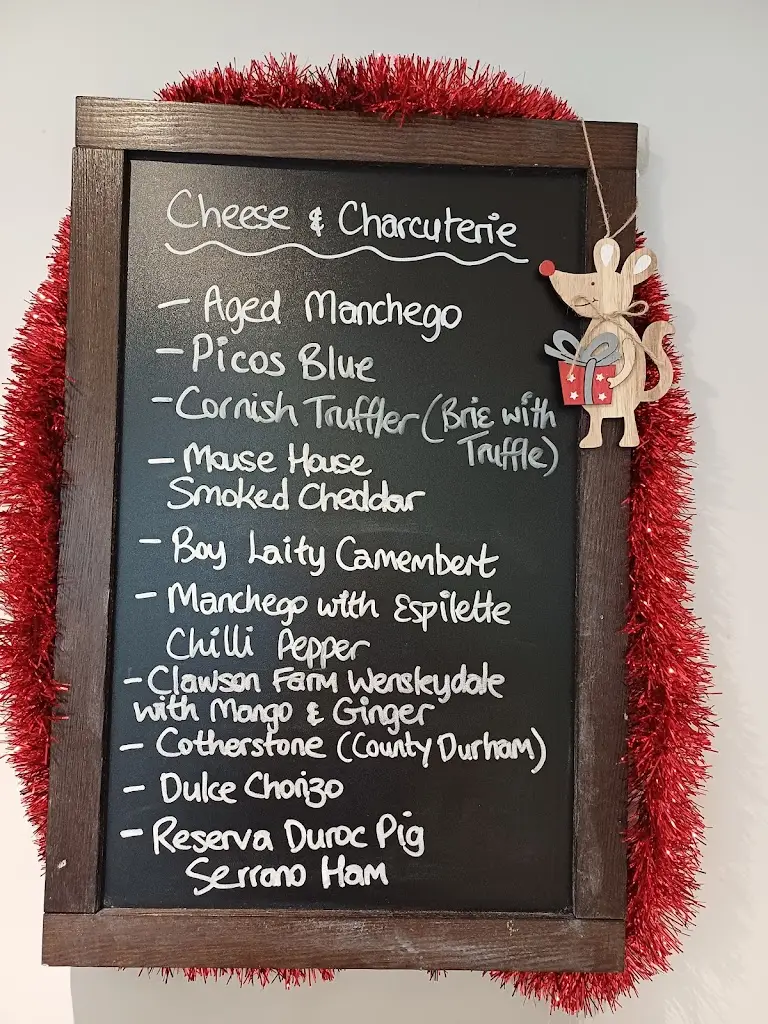 Cheese & Charcuterie
- Aged Manchego
- Picos Blue
- Cornish Truffler (Brie with
Truffle)
- Mouse House
Smoked Cheddar
- Boy Laity Camembert
- Manchego with Espilette
Chilli Pepper
- Clawson Farm Wensleydale
with Mango & Ginger
- Cotherstone (County Durham)
- Dulce Chorizo
- Reserva Duroc Pig
Serrano Ham